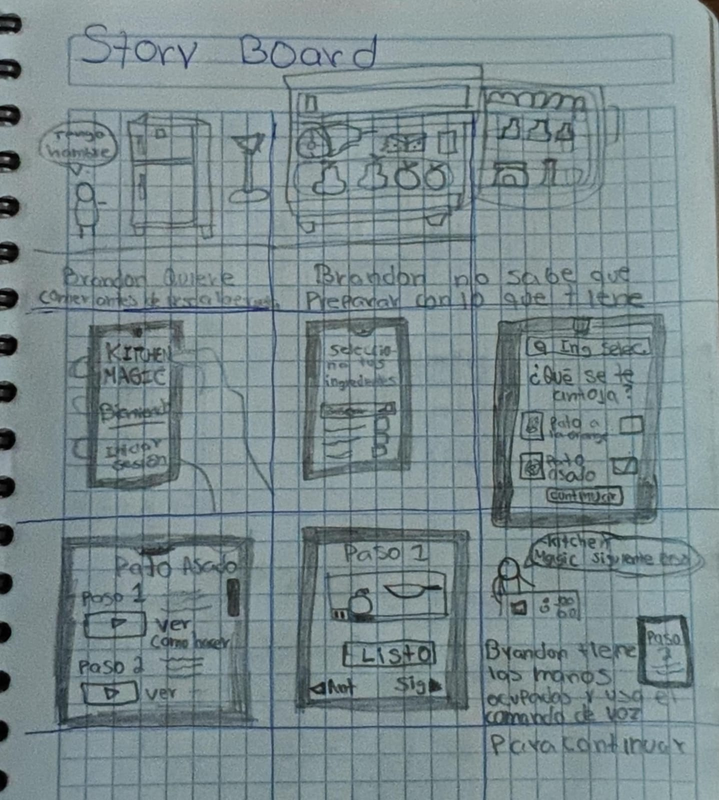 Story Board
Tengo
hambre
Brandon Quiere
comer antes de
Brandon no sabe que
Preparar con lo que tiene
KITCHEN
MAGIC
Bienvenid
Iniciar
sesion
Seleccio
na los
ingredientes
Ing selec.
¿Qué se te
antoja?
Pato a
la orange
Pato
asado
continuar
Pato Asado
Paso 1
ver
como hacer
Paso 2
ver
Paso 1
LISTO
Ant Sig
Kitchen
Magic siguiente paso
Brandon tiene
las manos
ocupadas y usa el
comando de voz
Para continuar
Paso
2